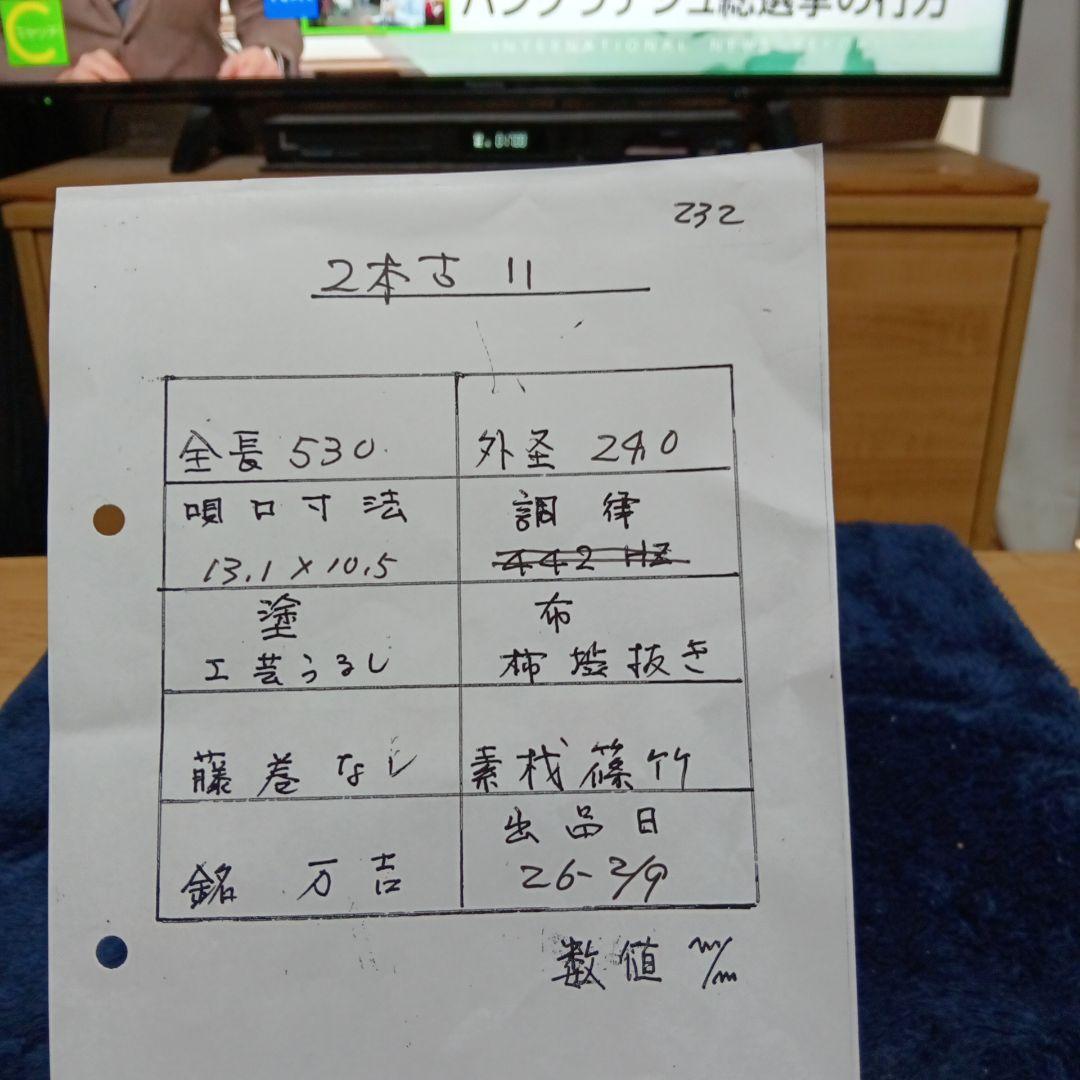 バングラデシュ総選挙の行方
INTERNATIONAL NEWS
232
2本古 11
全長 530
外圣 24.0
唄口寸法
13.1 × 10.5
調律
442 HZ
塗
工芸うるし
布
柿澁抜き
藤巻 なし
素材 篠竹
銘 万吉
出品日
26-2/9
数値 m/m